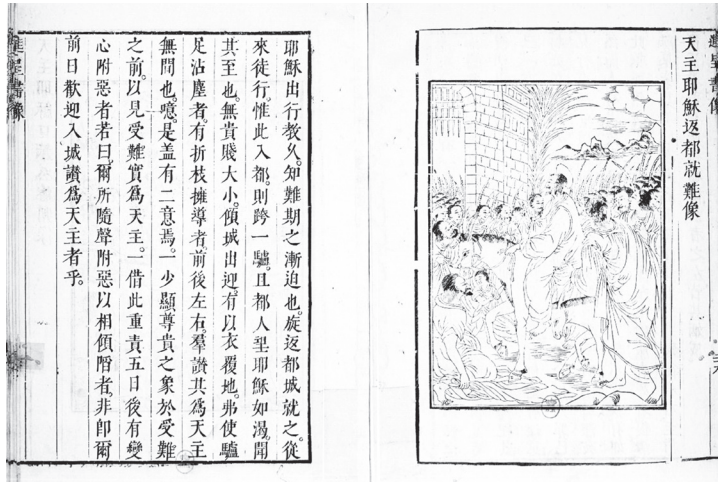 進呈書像
天主耶穌返都就難像
耶穌出行教久。知難期之漸迫也。旋返都城就之。從
來徒行。惟此入都。則跨一驢。且都人朢耶穌如渴。聞
其至也。無貴賤大小。傾城出迎。有以衣覆地。弗使驢
足沾塵者。有折枝擁導者。前後左右。羣讚其爲天主
無間也。噫。是盖有二意焉。一少顯尊貴之象於受難
之前。以見受難實爲天主。一借此重責五日後有變
心附惡者若曰。爾所隨聲附惡以相傾陷者。非卽爾
前日歡迎入城讚爲天主者乎。
進呈書像